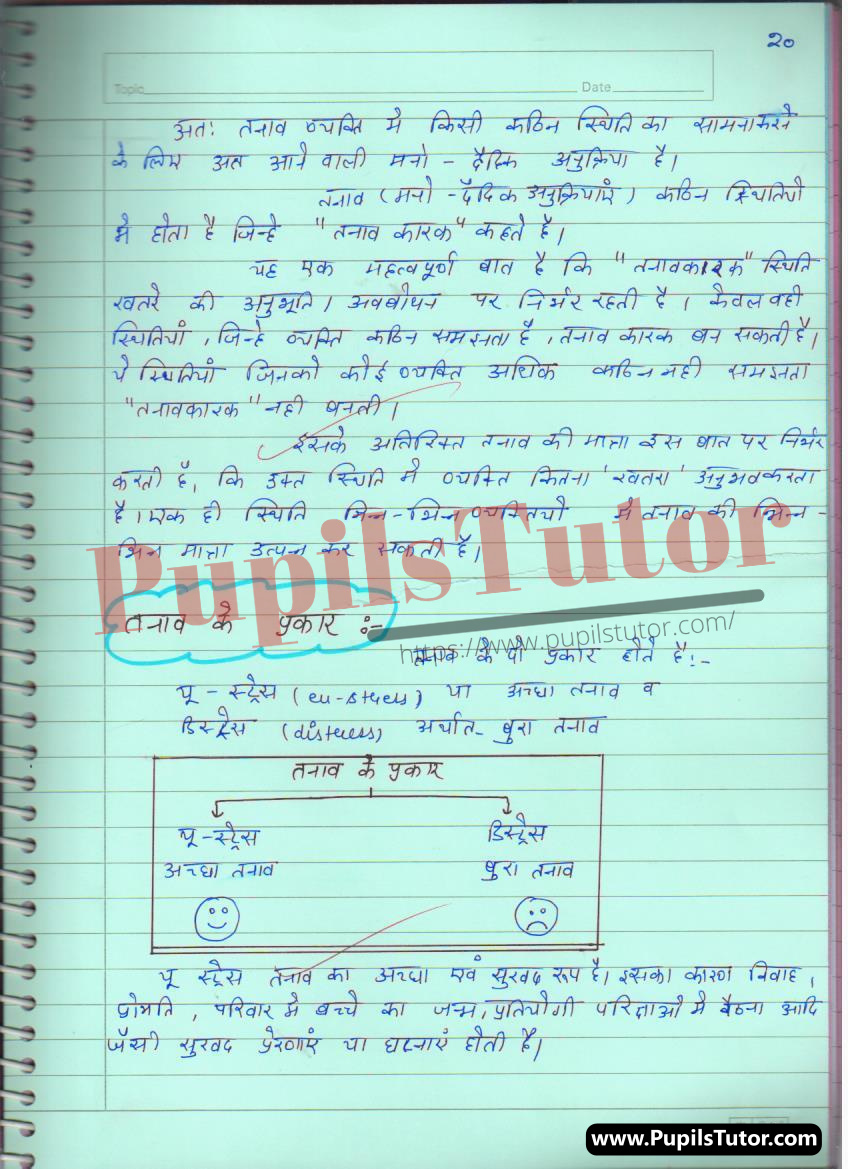 २०
Topic Date
अतः तनाव व्यक्ति मे किसी कठिन स्थिति का सामना करने
के लिए अत आने वाली मनो - दैहिक अनुक्रिया है।
तनाव (मनो - दैदिक अनुक्रियाएं) कठिन स्थितियो
मे होता है जिन्हे "तनाव कारक" कहते है।
यह एक महत्वपूर्ण बात है कि "तनावकारक" स्थिति
खतरे की अनुभूति। अवबोधन पर निर्भर रहती है । केवल वही
स्थितियां , जिन्हे व्यक्ति कठिन समझता है , तनाव कारक बन सकती है।
ये स्थितियां जिनको कोई व्यक्ति अधिक कठिन नही समझता
"तनावकारक" नही बनती ।
इसके अतिरिक्त तनाव की मात्रा इस बात पर निर्भर
करती है, कि उक्त स्थिति मे व्यक्ति कितना 'खतरा' अनुभव करता
है। एक ही स्थिति भिन्न-भिन्न व्यक्तियो मे तनाव की भिन्न -
भिन्न मात्रा उत्पन्न कर सकती है।
PupilsTutor
तनाव के प्रकार :-
https://www.pupilstutor.com/
तनाव के दो प्रकार होते है:-
यू - स्ट्रेस (eu-stress) या अच्छा तनाव व
डिस्ट्रेस (distress) अर्थात- बुरा तनाव
तनाव के प्रकार
यू-स्ट्रेस डिस्ट्रेस
अच्छा तनाव बुरा तनाव
यू स्ट्रेस तनाव का अच्छा एवं सुखद रूप है। इसका कारण विवाह ,
प्रोन्नति , परिवार मे बच्चे का जन्म, प्रतियोगी परिक्षाओ मे बैठना आदि
जैसी सुखद प्रेरणाएं या घटनाएं होती है।
www.PupilsTutor.com